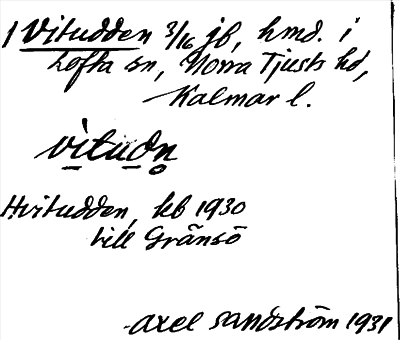 1 Vitudden 3/16 jb, hmd. i
Lofta sn, Norra Tjusts hd,
Kalmar l.
vìtudn̥
Hvitudden, kb 1930
till Gränsö
Axel Sandström 1931